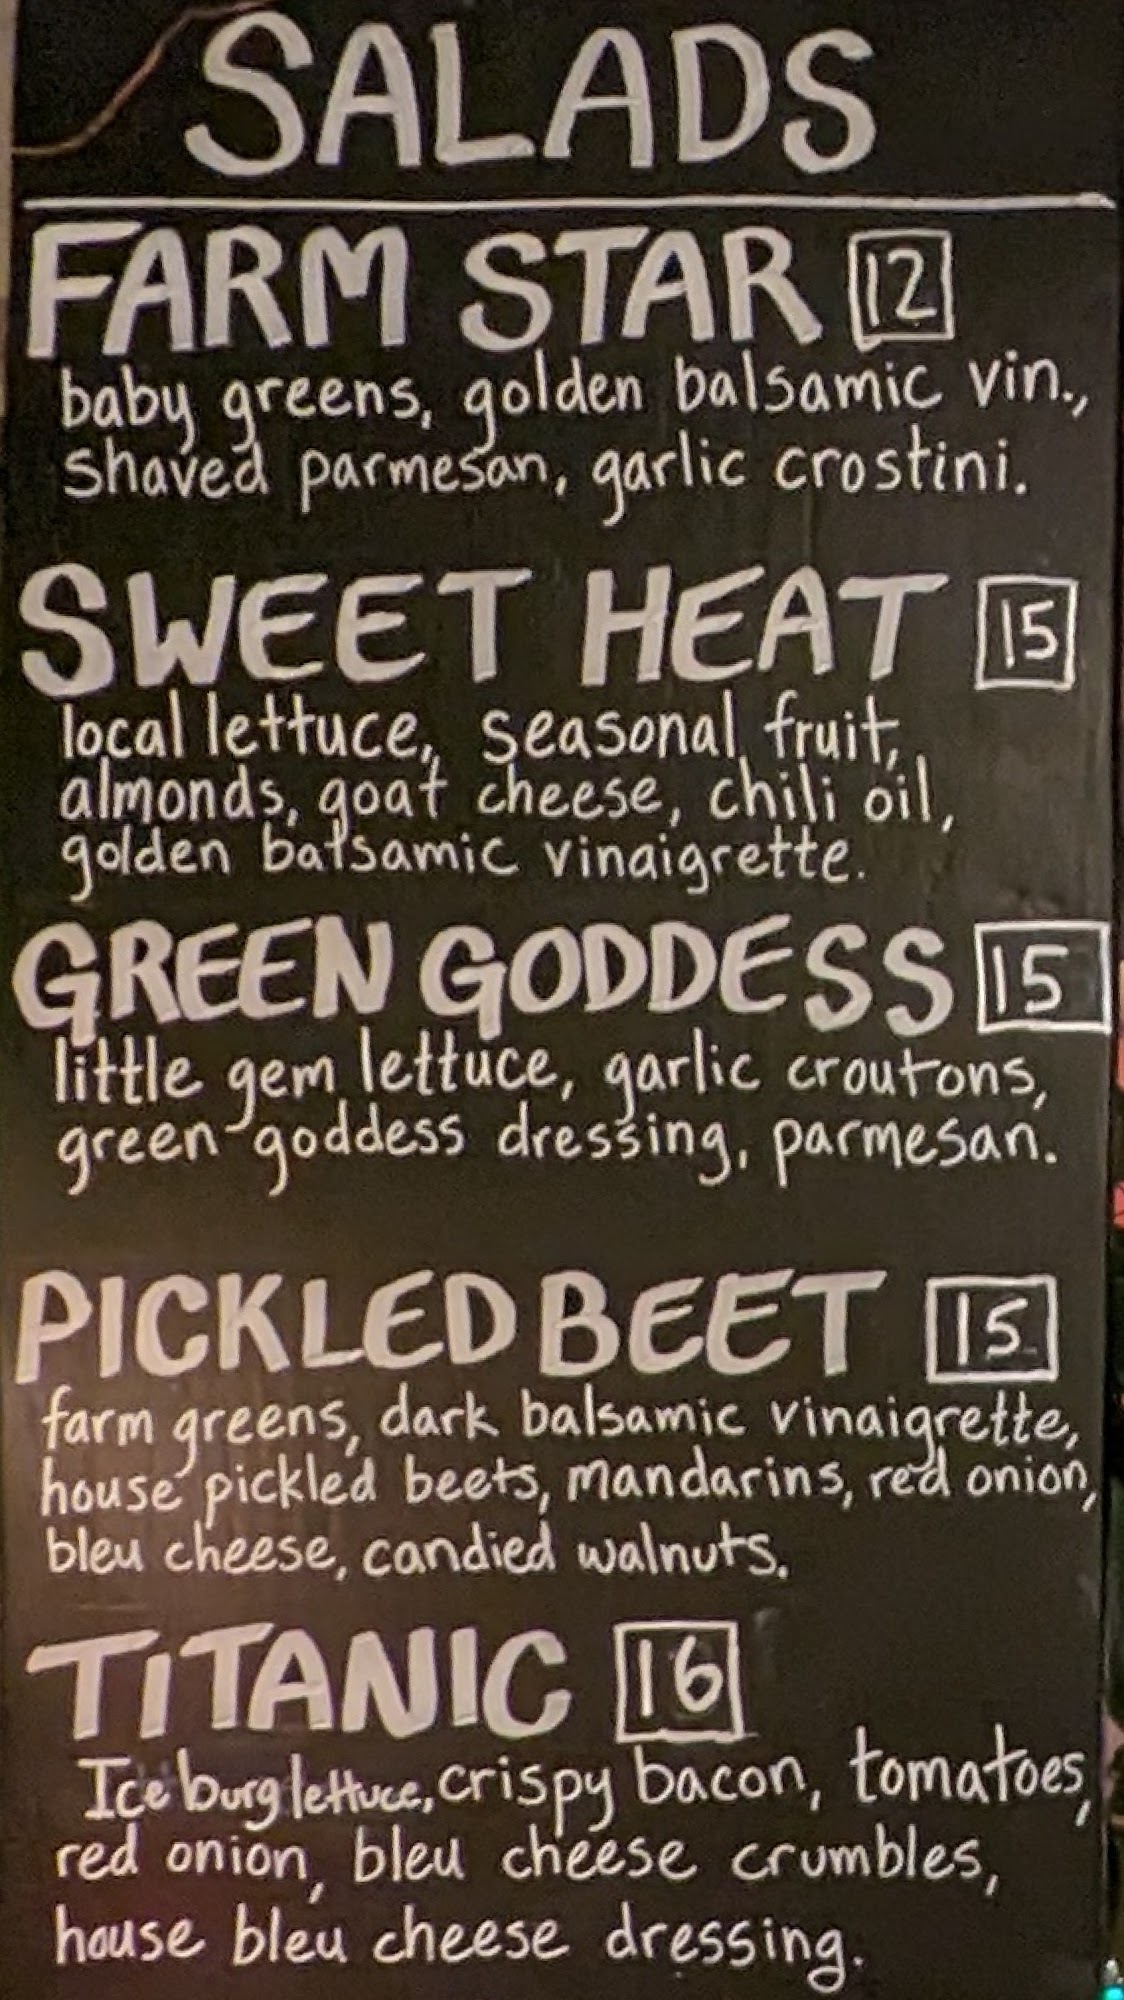 SALADS
FARM STAR 12
baby greens, golden balsamic vin.,
shaved parmesan, garlic crostini.
SWEET HEAT 15
local lettuce, seasonal fruit,
almonds, goat cheese, chili oil,
golden balsamic vinaigrette.
GREEN GODDESS 15
little gem lettuce, garlic croutons,
green goddess dressing, parmesan.
PICKLED BEET 15
farm greens, dark balsamic vinaigrette,
house pickled beets, mandarins, red onion,
bleu cheese, candied walnuts.
TITANIC 16
Ice burg lettuce, crispy bacon, tomatoes,
red onion, bleu cheese crumbles,
house bleu cheese dressing.